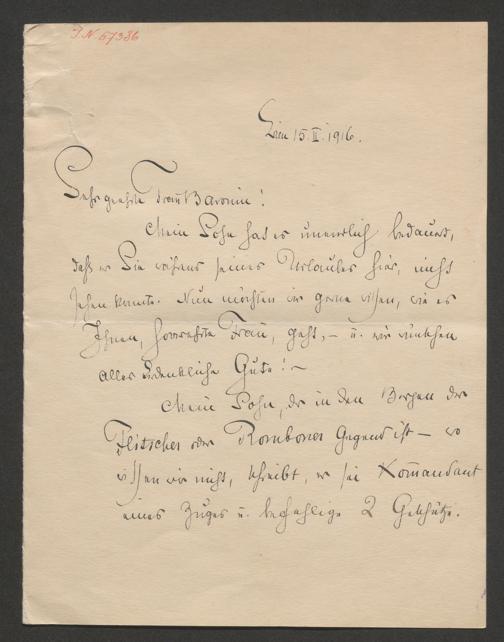 J.N. 67336
Wien 15 II. 1916.
Sehr geehrte Frau Baronin!
Mein Sohn hat es unendlich bedauert,
daß er Sie während seines Urlaubes hier, nicht
sehen konnte. Nun möchten wir gerne wissen, wie es
Ihnen, verehrte Frau, geht, – u. wir wünschen
alles erdenkliche Gute! –
Mein Sohn, der in den Bergen der
Flitscher oder Romboner Gegend ist – wo
wissen wir nicht, schreibt, er sei Kommandant
eines Zuges u. befehlige 2 Geschütze.